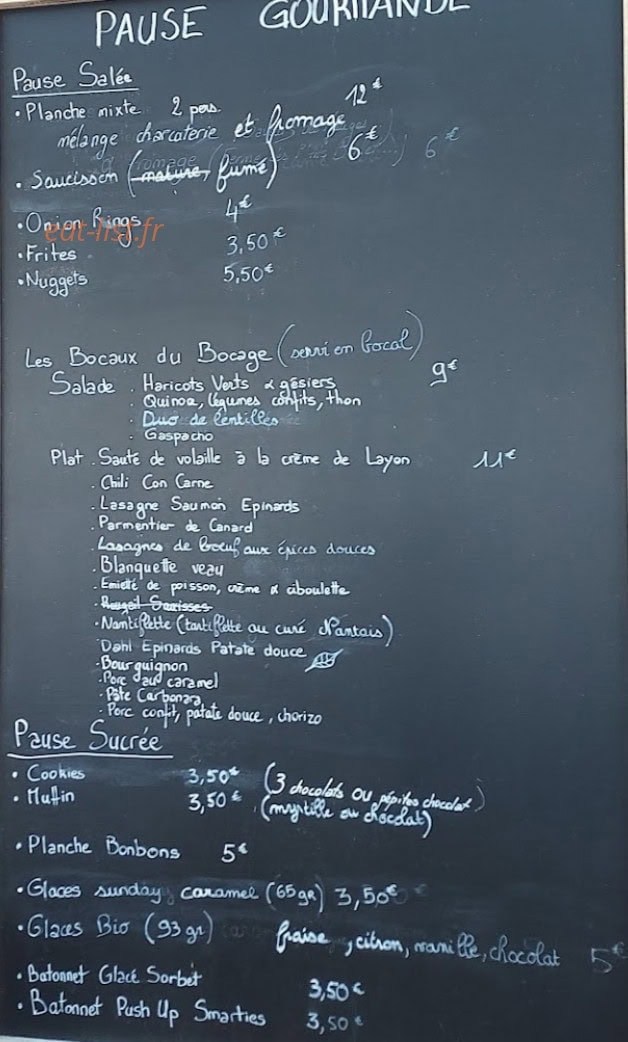 PAUSE GOURMANDE
Pause Salée
• Planche mixte 2 pers. 12€
mélange charcuterie et fromage
• Saucisson (nature, fumé) 6€ 6€
• Onion Rings 4€
eat-list.fr
• Frites 3,50€
• Nuggets 5,50€
Les Bocaux du Bocage (servi en bocal)
Salade . Haricots Verts & gésiers 9€
. Quinoa, légumes confits, thon
. Duo de lentilles
. Gaspacho
Plat . Sauté de volaille à la crème de Layon 11€
. Chili Con Carne
. Lasagne Saumon Epinards
. Parmentier de Canard
. Lasagnes de boeuf aux épices douces
. Blanquette veau
. Emietté de poisson, crème & ciboulette
. Rougail Saucisses
. Nantiflette (tartiflette au curé Nantais)
Dahl Epinards Patate douce
. Bourguignon
. Porc au caramel
. Pâte Carbonara
. Porc confit, patate douce, chorizo
Pause Sucrée
• Cookies 3,50€ (3 chocolats ou pépites chocolat)
• Muffin 3,50€ (myrtille ou chocolat)
• Planche Bonbons 5€
• Glaces sunday caramel (65gr) 3,50€
• Glaces Bio (93gr) fraise, citron, vanille, chocolat 5€
• Batonnet Glacé Sorbet 3,50€
• Batonnet Push Up Smarties 3,50€